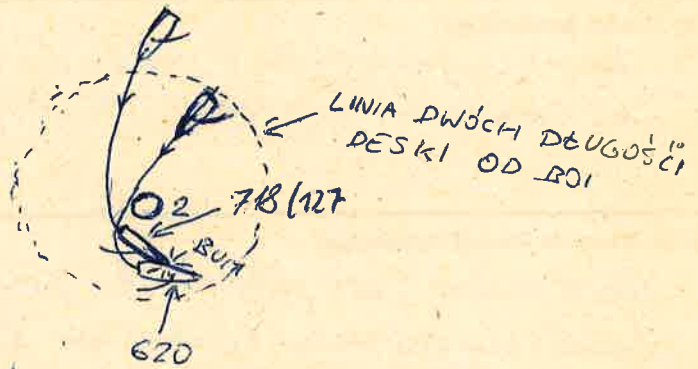 LINIA DWÓCH DŁUGOŚCI
DESKI OD BOI
2
718/127
BUM
620